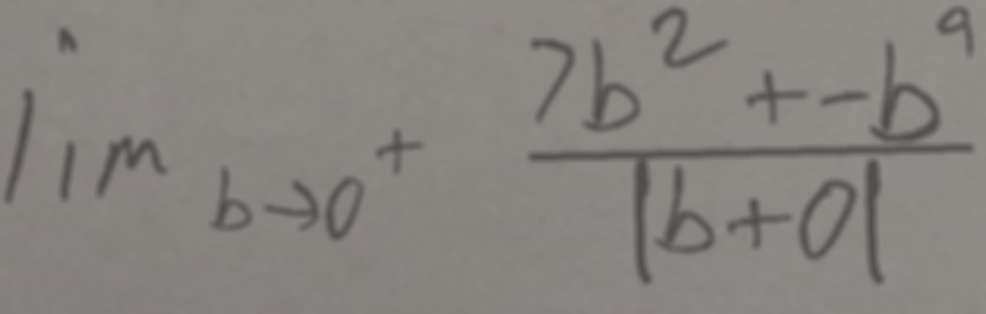 lim_{b \to 0^+} \frac{7b^2 + -b^9}{|b+0|}